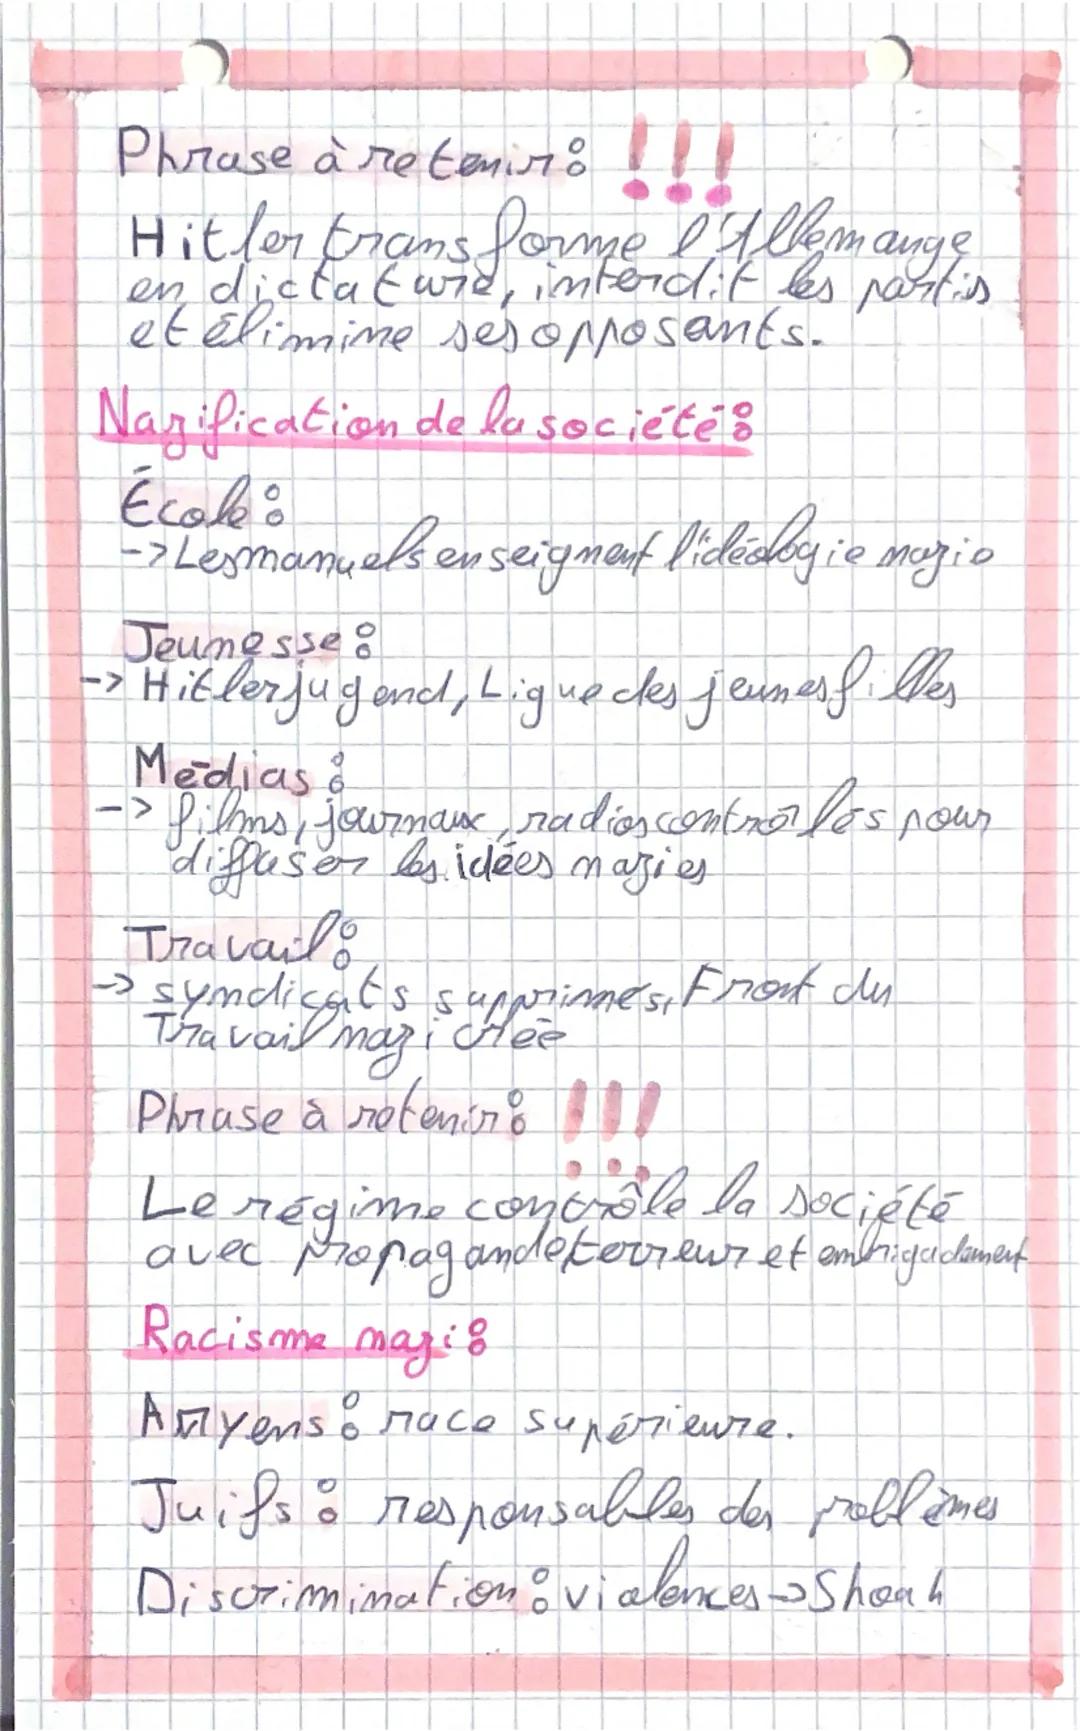 Phrase à retenir : !!!
Hitler transforme l'Allemange
en dictature, interdit les partis
et élimine ses opposants.
Nazification de la société :
École :
-> Les manuels enseignent l'idéologie nazie
Jeunesse :
-> Hitlerjugend, Ligue des jeunes filles
Médias :
-> films, journaux, radios contrôlés pour
diffuser les idées nazies
Travail :
-> syndicats supprimés, Front du
Travail nazi créé
Phrase à retenir : !!!
Le régime contrôle la société
avec propagande terreur et embrigadement
Racisme nazi :
Aryens : race supérieure.
Juifs : responsables des problèmes
Discrimination : violences -> Shoah